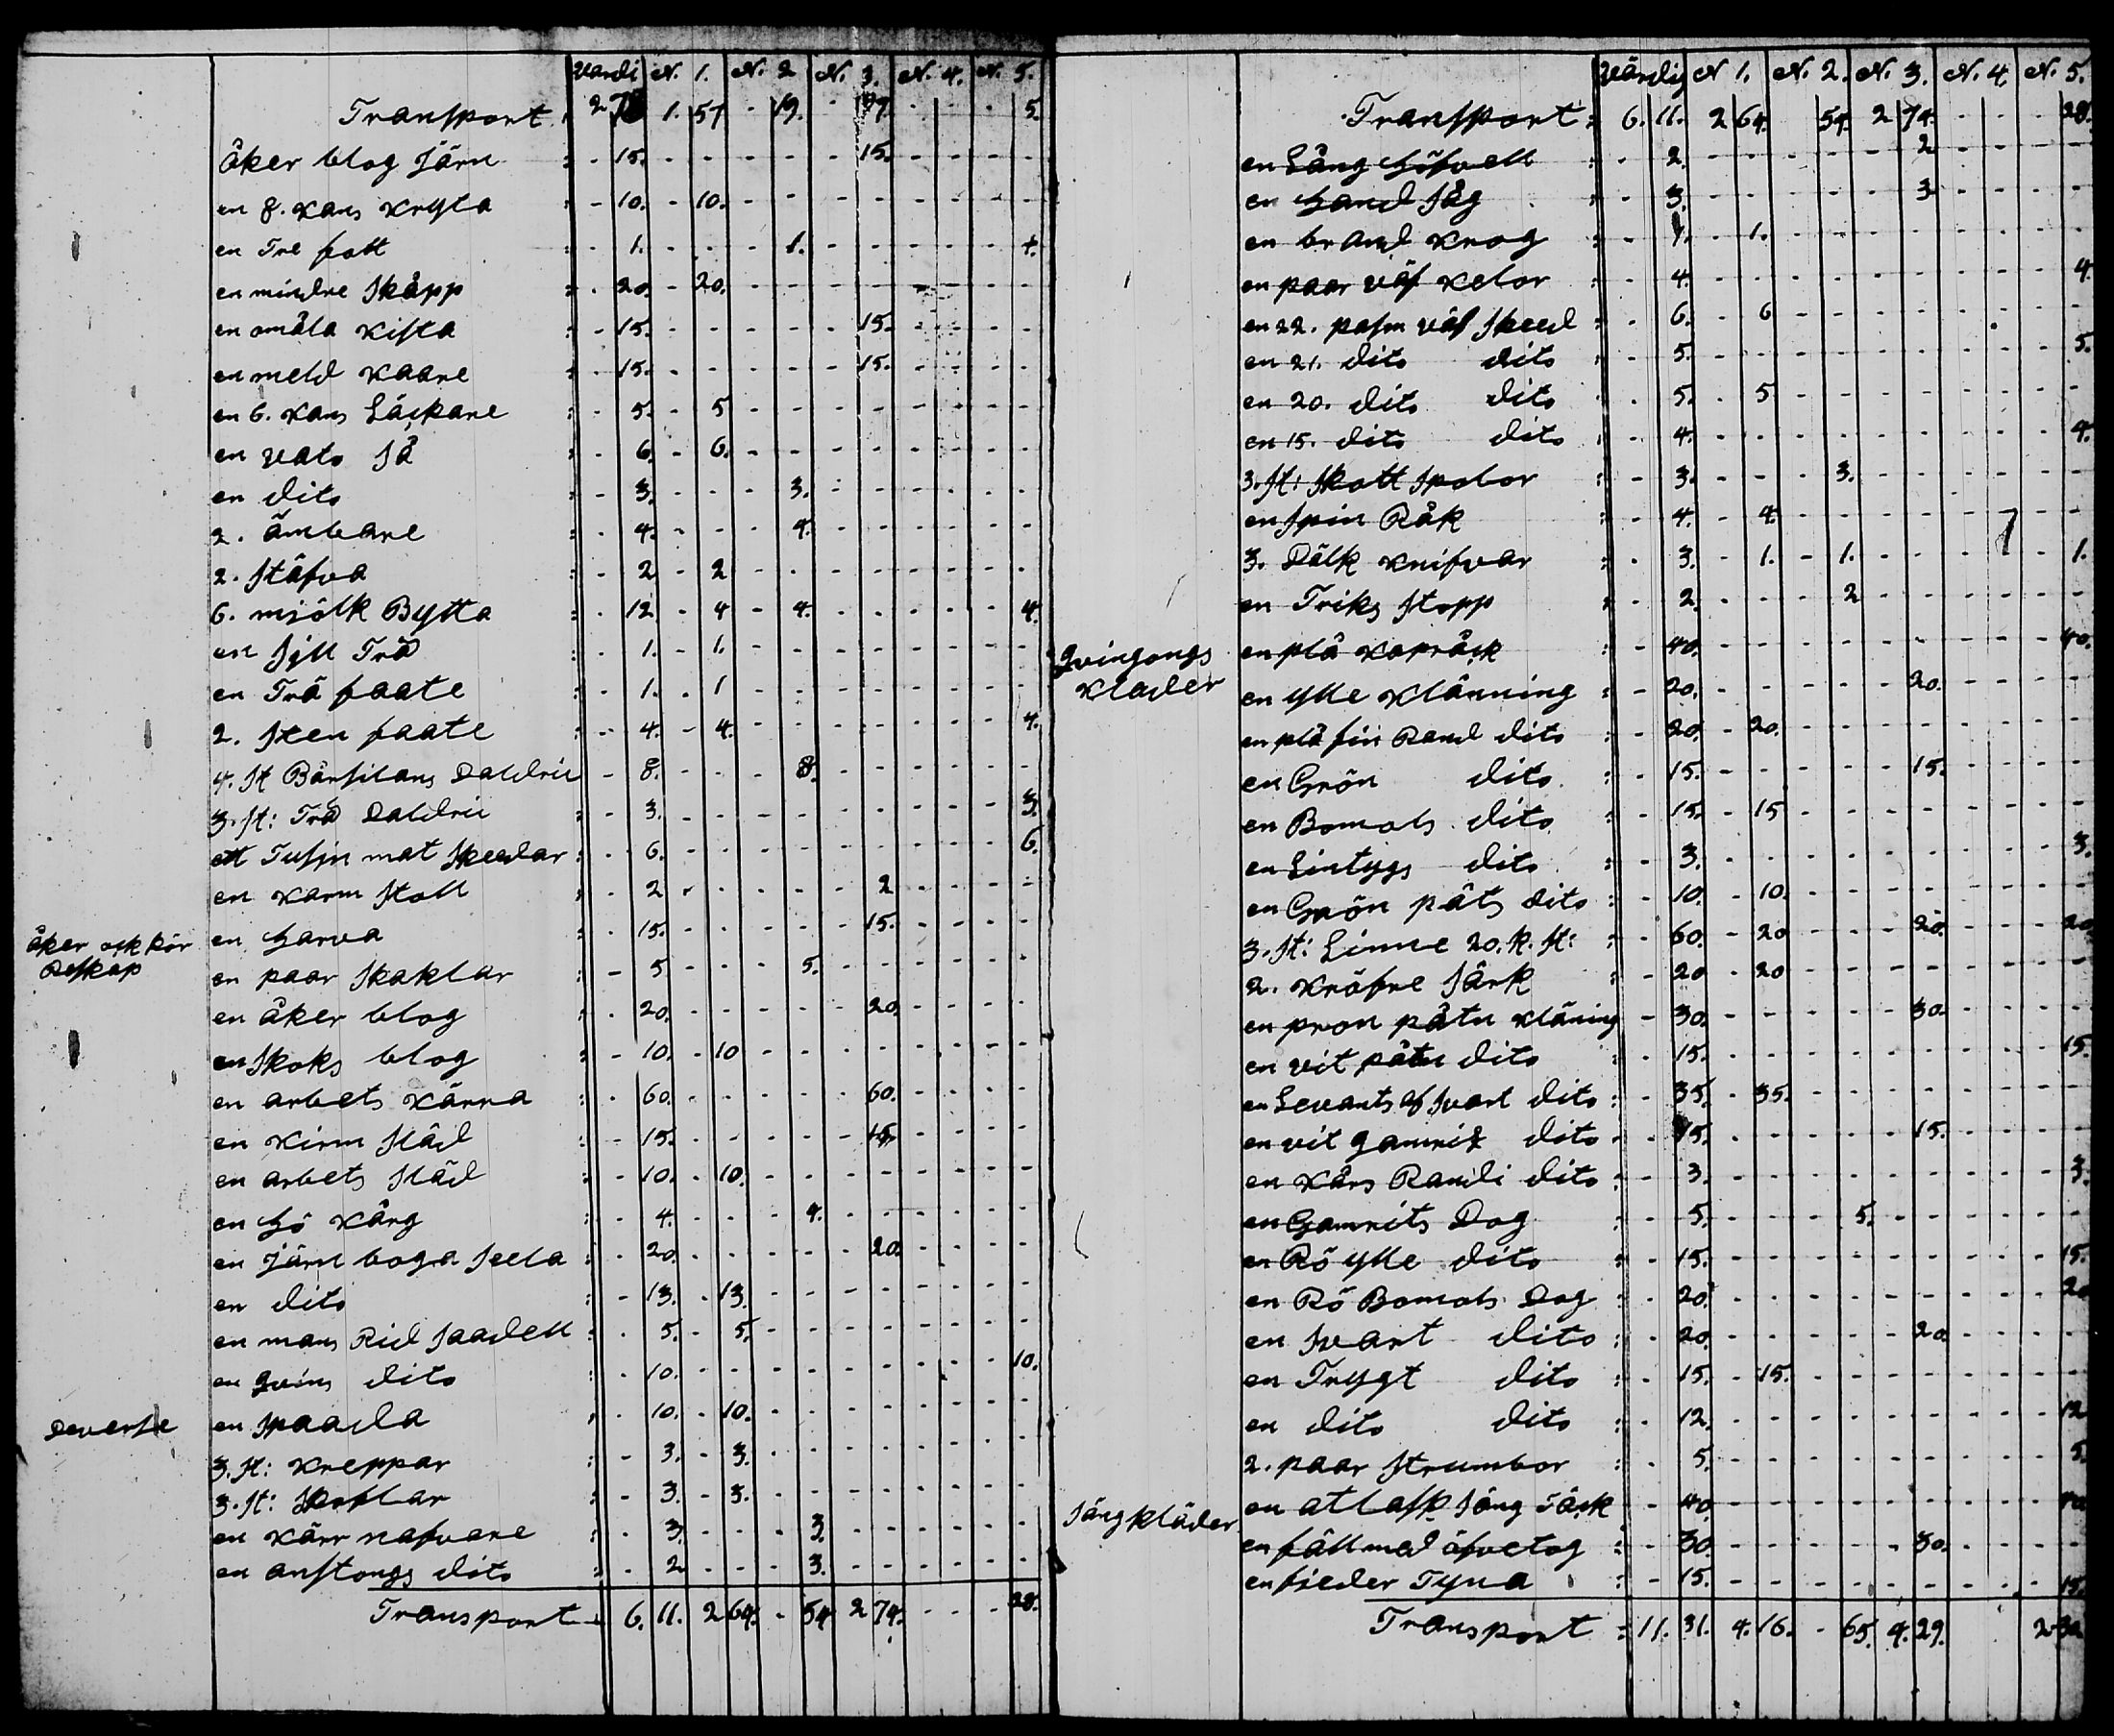 värdi N. 1. N. 2 N. 3. N. 4. N. 5.
Transport : 2 78 1. 57 - 19. - 79. - - - 5.
åker blog Järn : - 15. - - - - - 15. - - - -
en 8. kans krysta : - 10. - 10. - - - - - - - -
en Tre fatt : - 1. - - - 1. - - - - - +.
en mindre skåpp : - 20. - 20. - - - - - - - -
en omåla kista : - 15. - - - - - 15. - - - -
en meld kaare : - 15. - - - - - 15. - - - -
en 6. kans Läckare : - 5. - 5 - - - - - - - -
en vato så : - 6. - 6. - - - - - - - -
en dito : - 3. - - - 3. - - - - - -
2. ämbare : - 4. - - - 4. - - - - - -
2. Stäfva : - 2 - 2 - - - - - - - -
6. mjölk Bytta : - 12 - 4 - 4. - - - - - 4.
en sjll Trå : - 1. - 1. - - - - - - - -
en Trä faate : - 1. - 1 - - - - - - - -
2. sten faate : - 4. - 4. - - - - - - - 4.
4. st Bärsilans Daldrii - 8. - - - 8. - - - - - -
3. st: Trä Daldrii : - 3. - - - - - - - - - 3.
ett Tusjn mat skedar : - 6. - - - - - - - - - 6.
en karm stoll : - 2 - - - - - 2 - - - -
åker ock kör en harva : - 15. - - - - - 15. - - - -
Reskap en paar skaklar : - 5 - - - 5. - - - - - -
en åker blog : - 20. - - - - - 20. - - - -
en skoks blog : - 10. - 10 - - - - - - - -
en arbets kärra : - 60. - - - - - 60. - - - -
en kirm släd : - 15. - - - - - 15. - - - -
en arbets släd : - 10. - 10. - - - - - - - -
en hö kårg : - 4. - - - 4. - - - - - -
en järn boga seela : - 20. - - - - - 20. - - - -
en dito : - 13. - 13. - - - - - - - -
en mans Rid saadell : - 5. - 5. - - - - - - - -
en qvins dito : - 10. - - - - - - - - - 10.
Deverse en spaada : - 10. - 10. - - - - - - - -
3. st: kreppar : - 3. - 3. - - - - - - - -
3. st: skoflar : - 3. - 3. - - - - - - - -
en kärr nafvare : - 3. - - - 3. - - - - - -
en anstongs dito : - 2 - - - 3. - - - - - -
Transport 6. 11. 2 64. - 54 2 74. - - - 28.
värdig N 1. N. 2. N. 3. N. 4. N. 5.
Transport : 6. 11. 2 64. 54. 2 74. - - - 28.
en Lång höfvell : - 2. - - - - - 2 - - - -
en hand såg : - 3. - - - - - 3 - - - -
en brand krog : - 1. - 1. - - - - - - - -
en paar väf kelor : - 4. - - - - - - - - - 4.
en 22. pasm väf skeed : - 6. - 6 - - - - - - - -
en 21. dito dito : - 5. - - - - - - - - - 5.
en 20. dito dito : - 5. - 5 - - - - - - - -
en 15. dito dito : - 4. - - - - - - - - - 4.
3. st: skott spolor : - 3. - - - 3. - - - - - -
en spin Råk : - 4. - 4. - - - - - - - -
3. Dälk knifvar : - 3. - 1. - 1. - - - - - 1.
en Triks stopp : - 2. - - - 2 - - - - - -
Qvinfongs en plå kapråck : - 40. - - - - - - - - - 40.
klader en ylle klänning : - 20. - - - - - 20. - - - -
en plå fin Rand dito : - 20. - 20. - - - - - - - -
en Grön dito : - 15. - - - - - 15. - - - -
en Bomols dito : - 15. - 15 - - - - - - - -
en Lintygs dito : - 3. - - - - - - - - - 3.
en Grön påts dito : - 10. - 10. - - - - - - - -
3. st: Linne 20. k. st: : - 60. - 20 - - - 20. - - - 20.
2. kröfre Särk : - 20 - 20 - - - - - - - -
en pron påtn kläning - 30. - - - - - 30. - - - -
en vit påtn dito : - 15. - - - - - - - - - 15.
en Levants af svart dito : - 35. - 35. - - - - - - - -
en vit gamrik dito - - 15. - - - - - 15. - - - -
en kårs Randi dito : - 3. - - - - - - - - - 3.
en Gamrits Dog - 5. - - - 5. - - - - - -
en Rö ylle dito : - 15. - - - - - - - - - 15.
en Rö Bomols Dog : - 20. - - - - - - - - - 20
en svart dito : - 20. - - - - - 20. - - - -
en Trygt dito : - 15. - 15. - - - - - - - -
en dito dito : - 12. - - - - - - - - - 12
2. paar strumbor : - 5. - - - - - - - - - 5.
sängkläder en atlask säng Täck - 40. - - - - - - - - - 40
en fäll med äfvetog : - 30. - - - - - 30. - - - -
en fieder Tyna : - 15. - - - - - - - - - 15.
Transport : 11. 31. 4. 16. - 65. 4. 29. 2 30.